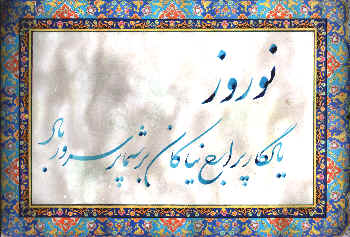 نوروز
یادگار پر ارج نیاکان بر شما پر سرور باد